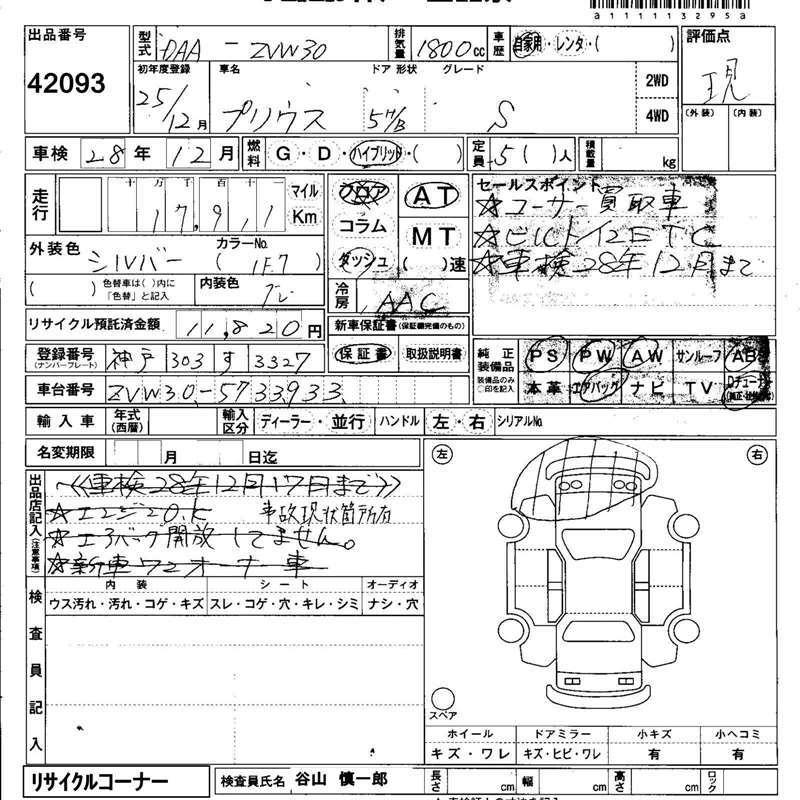 a111113295a
出品番号 型式 DAA - ZVW30 排気量 1800cc 車歴 自家用・レンタ・( ) 評価点
42093 初年度登録 車名 ドア 形状 グレード 2WD 現
25/12月 プリウス 5 H/B S 4WD (外装) (内装)
車検 28年 12月 燃料 G・D・ハイブリッド・( ) 定員 5( )人 積載量 kg
走行 十万千百十一 マイル フロア AT セールスポイント
17,911 Km コラム MT ☆ユーザー買取車
外装色 シルバー カラーNo. ( 1F7 ) ダッシュ ( )速 ☆ビルトイン ETC
( ) 色替車は( )内に「色替」と記入 内装色 グレ 冷房 AAC ☆車検28年12月まで
リサイクル預託済金額 11,820円 新車保証書(保証継続完備のもの)
登録番号 (ナンバープレート) 神戸 303 す 3327 保証書 取扱説明書 純正装備品 PS PW AW サンルーフ ABS
車台番号 ZVW30-5733933 装備品のみ○印を記入 本革 エアバッグ ナビ TV Dチューナー
輸入車 年式(西暦) 輸入区分 ディーラー・並行 ハンドル 左・右 シリアルNo.
名変期限 月 日迄 左 右
出品店記入(注意事項) 〈〈車検28年12月17日まで〉〉
☆エンジンO.K 事故現状箇所有
☆エアバック開放してません。
☆新車ワンオーナー車
検査員記入 内装 シート オーディオ
ウス汚れ・汚れ・コゲ・キズ スレ・コゲ・穴・キレ・シミ ナシ・穴
スペア
ホイール ドアミラー 小キズ 小ヘコミ
キズ・ワレ キズ・ヒビ・ワレ 有 有
リサイクルコーナー 検査員氏名 谷山 慎一郎 長さ cm 幅 cm 高さ cm ロック